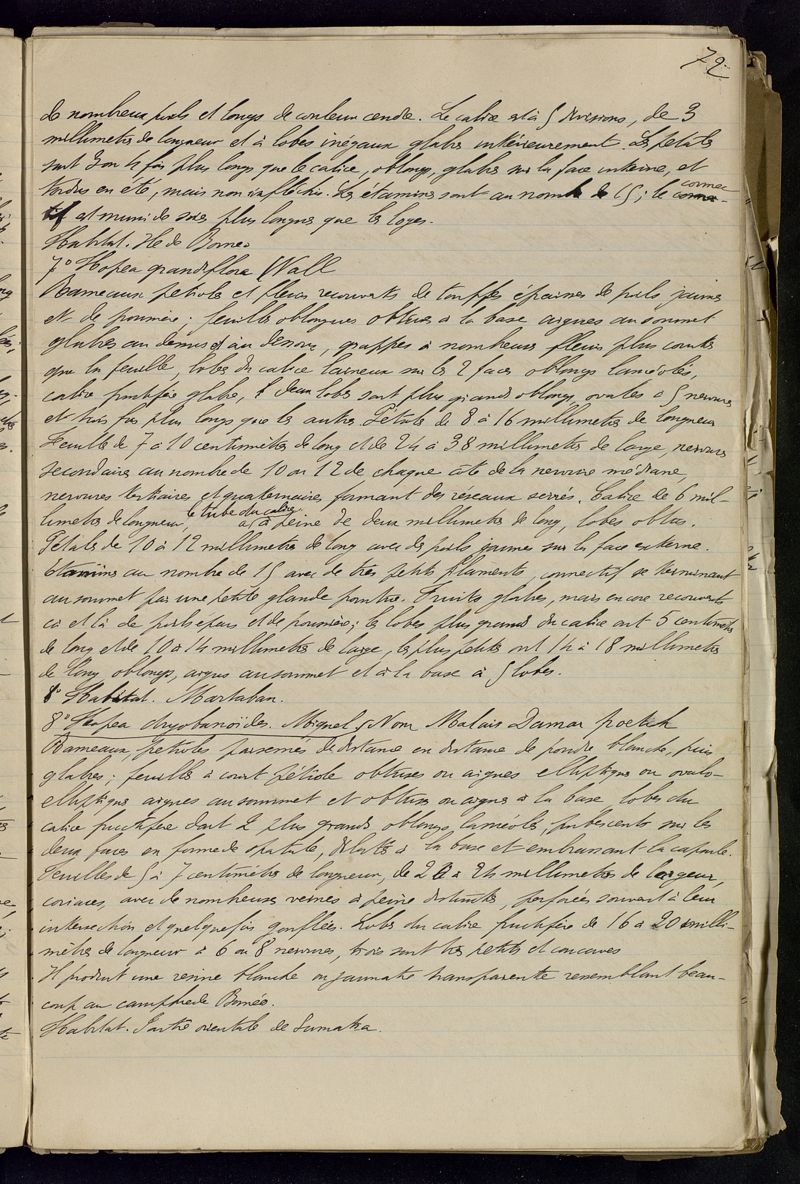 72
de nombreux poils et longs de couleur cendre. Le calice est à 5 divisions, de 3
millimetres de longueur et à lobes inégaux glabres interieurement. Les petales
sont 3 ou 4 fois plus longs que le calice, oblongs, glabres sur la face interne, et
tordus en été, mais non inflechis. Les etamines sont au nombre de 15; le connec-
tif est muni de soies plus longues que les loges.
Habitat. Ile de Borneo
7º Hopea grandiflora (Wall
Rameaux petioles et fleurs recouverts de touffes épaisses de poils jaunes
et de poussiere: feuilles oblongues obtuses à la base aigues au sommet
glabres au dessus et au dessous, grappes à nombreuses fleurs plus courtes
que la feuille, lobes du calice laineux sur les 2 faces oblongs lanceolés,
calice fructifère glabre, deux lobes sont plus grands oblongs, ovales à 5 nervures
et trois fois plus longs que les autres. Pétales de 8 à 16 millimetres de longueur
Feuilles de 7 à 10 centimètres de long et de 24 à 38 millimetres de large, nervures
secondaires au nombre de 10 ou 12 de chaque côte de la nervure médiane,
nervures tertiaires et quaternaires formant des reseaux serrés. Calice de 6 mil-
limetres de longueur, le tube du calice a à peine de deux millimetres de long, lobes obtus.
Pétales de 10 à 12 millimetres de long avec des poils jaunes sur la face externe.
Etamines au nombre de 15 avec de très petits filaments, connectif se terminant
au sommet par une petite glande pointue. Fruits glabres, mais encore recouverts
cà et là de poils epars et de poussière; les lobes plus grands du calice ont 5 centimetres
de long et de 10 à 14 millimetres de large, les plus petits ont 14 à 18 millimetres
de long oblongs, aigus au sommet et à la base à 5 lobes.
Habitat. Martaban.
8º Hopea dryobanoïdes. Miquel; Nom Malais Damar poeteh
Rameaux, petioles parsemés de distance en distance de poudre blanche, puis
glabres; feuilles à court pétiole obtuses ou aigues elliptiques ou ovalo-
elliptiques aigues au sommet et obtuses ou aigues à la base lobes du
calice fructifère dont 2 plus grands oblongs lanceolés, pubescents sur les
deux faces en forme de spatule, dilatés à la base et embrassant la capsule.
Feuilles de 5 à 7 centimètres de longueur, de 20 à 24 millimetres de largeur,
coriaces, avec de nombreuses veines à peine distinctes, perforées souvent à leur
intersection et quelquefois gonflées. Lobes du calice fructifère de 16 à 20 milli-
mètres de longueur à 6 ou 8 nervures, trois sont tres petits et concaves
Il produit une resine blanche ou jaunatre transparente resemblant beau-
coup au camphre de Borneo.
Habitat. Partie orientale de Sumatra.